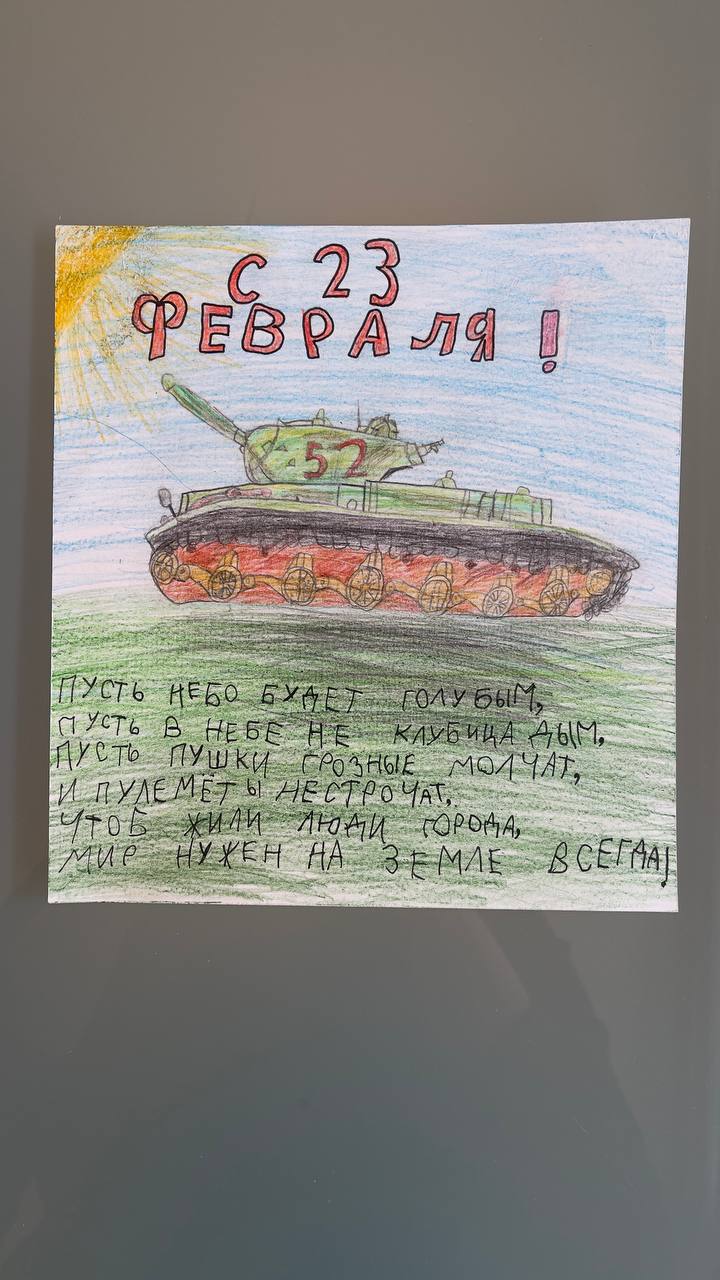 С 23
ФЕВРАЛЯ!
52
ПУСТЬ НЕБО БУДЕТ ГОЛУБЫМ,
ПУСТЬ В НЕБЕ НЕ КЛУБИЦА ДЫМ,
ПУСТЬ ПУШКИ ГРОЗНЫЕ МОЛЧАТ,
И ПУЛЕМЁТЫ НЕСТРОЧАТ,
ЧТОБ ЖИЛИ ЛЮДИ ГОРОДА,
МИР НУЖЕН НА ЗЕМЛЕ ВСЕГДА!